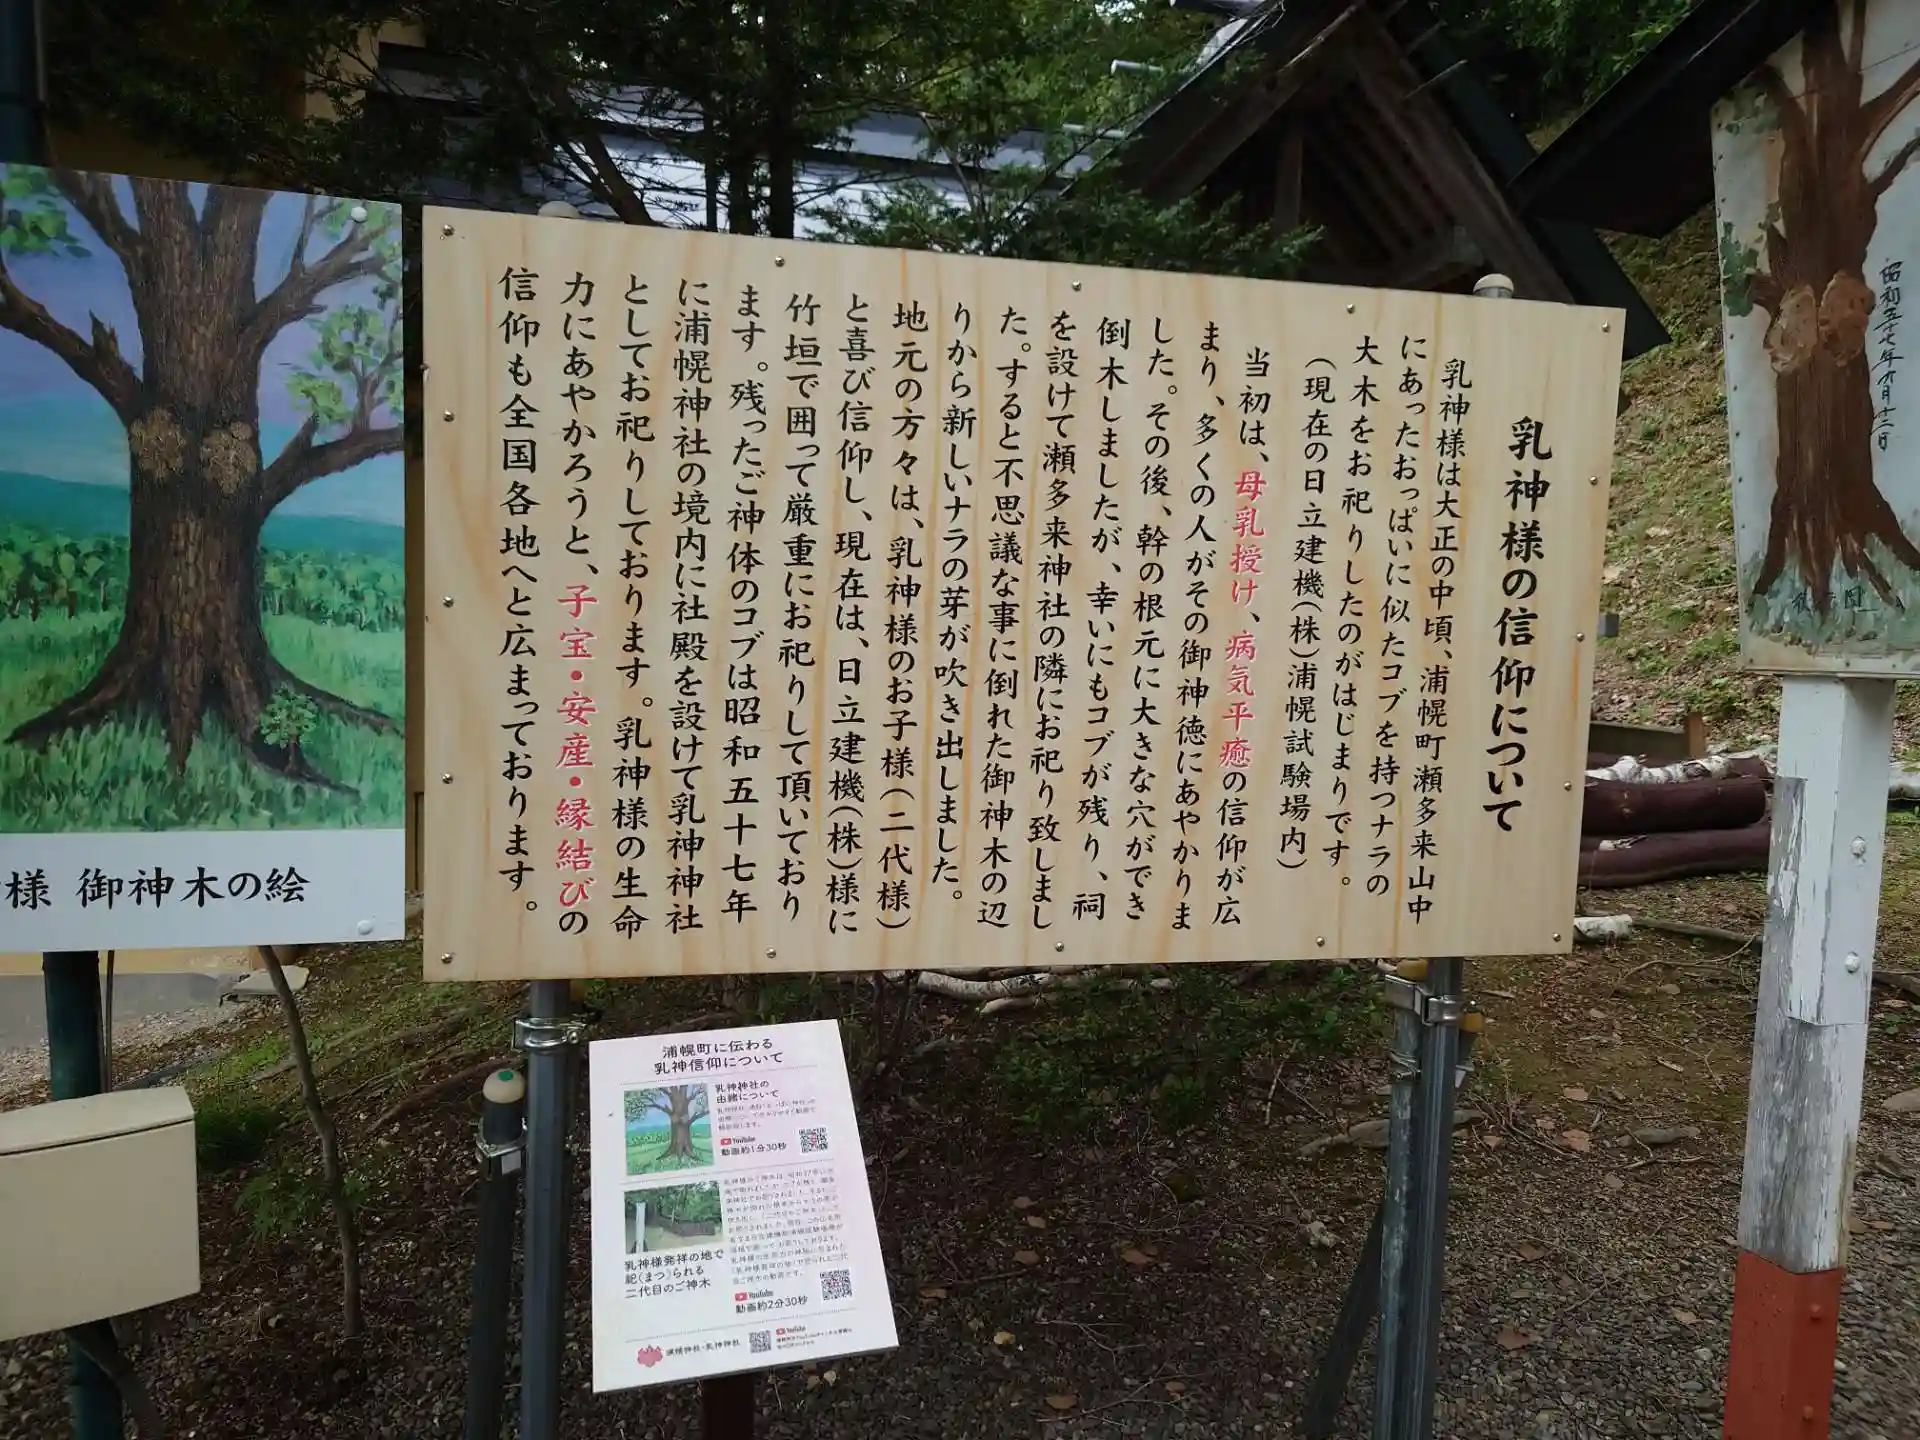 乳神様の信仰について
乳神様は大正の中頃、浦幌町瀬多来山中
にあったおっぱいに似たコブを持つナラの
大木をお祀りしたのがはじまりです。
(現在の日立建機(株)浦幌試験場内)
当初は、母乳授け、病気平癒の信仰が広
まり、多くの人がその御神徳にあやかりま
した。その後、幹の根元に大きな穴ができ
倒木しましたが、幸いにもコブが残り、祠
を設けて瀬多来神社の隣にお祀り致しまし
た。すると不思議な事に倒れた御神木の辺
りから新しいナラの芽が吹き出しました。
地元の方々は、乳神様のお子様(二代様)
と喜び信仰し、現在は、日立建機(株)様に
竹垣で囲って厳重にお祀りして頂いており
ます。残ったご神体のコブは昭和五十七年
に浦幌神社の境内に社殿を設けて乳神神社
としてお祀りしております。乳神様の生命
力にあやかろうと、子宝・安産・縁結びの
信仰も全国各地へと広まっております。
様 御神木の絵
昭和五十七年六月十三日
浦幌町に伝わる
乳神信仰について
乳神神社の
由緒について
YouTube
動画約1分30秒
乳神様発祥の地で
祀(まつ)られる
二代目のご神木
YouTube
動画約2分30秒
浦幌神社・乳神神社
YouTube